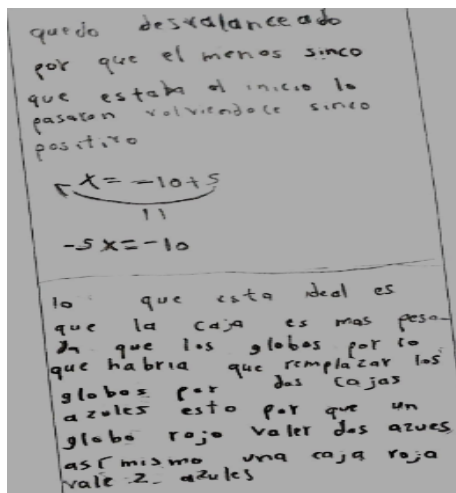 quedo desvalanceado
por que el menos sinco
que estaba al inicio lo
pasaron volviendoce sinco
positivo
x = -10+5
-5x=-10
lo que esta ideal es
que la caja es mas pesa-
da que los globos por lo
que habria que remplazar los
globos por dos cajas
azules esto por que un
globo rojo valer dos azues
así mismo una caja roja
vale 2 azules